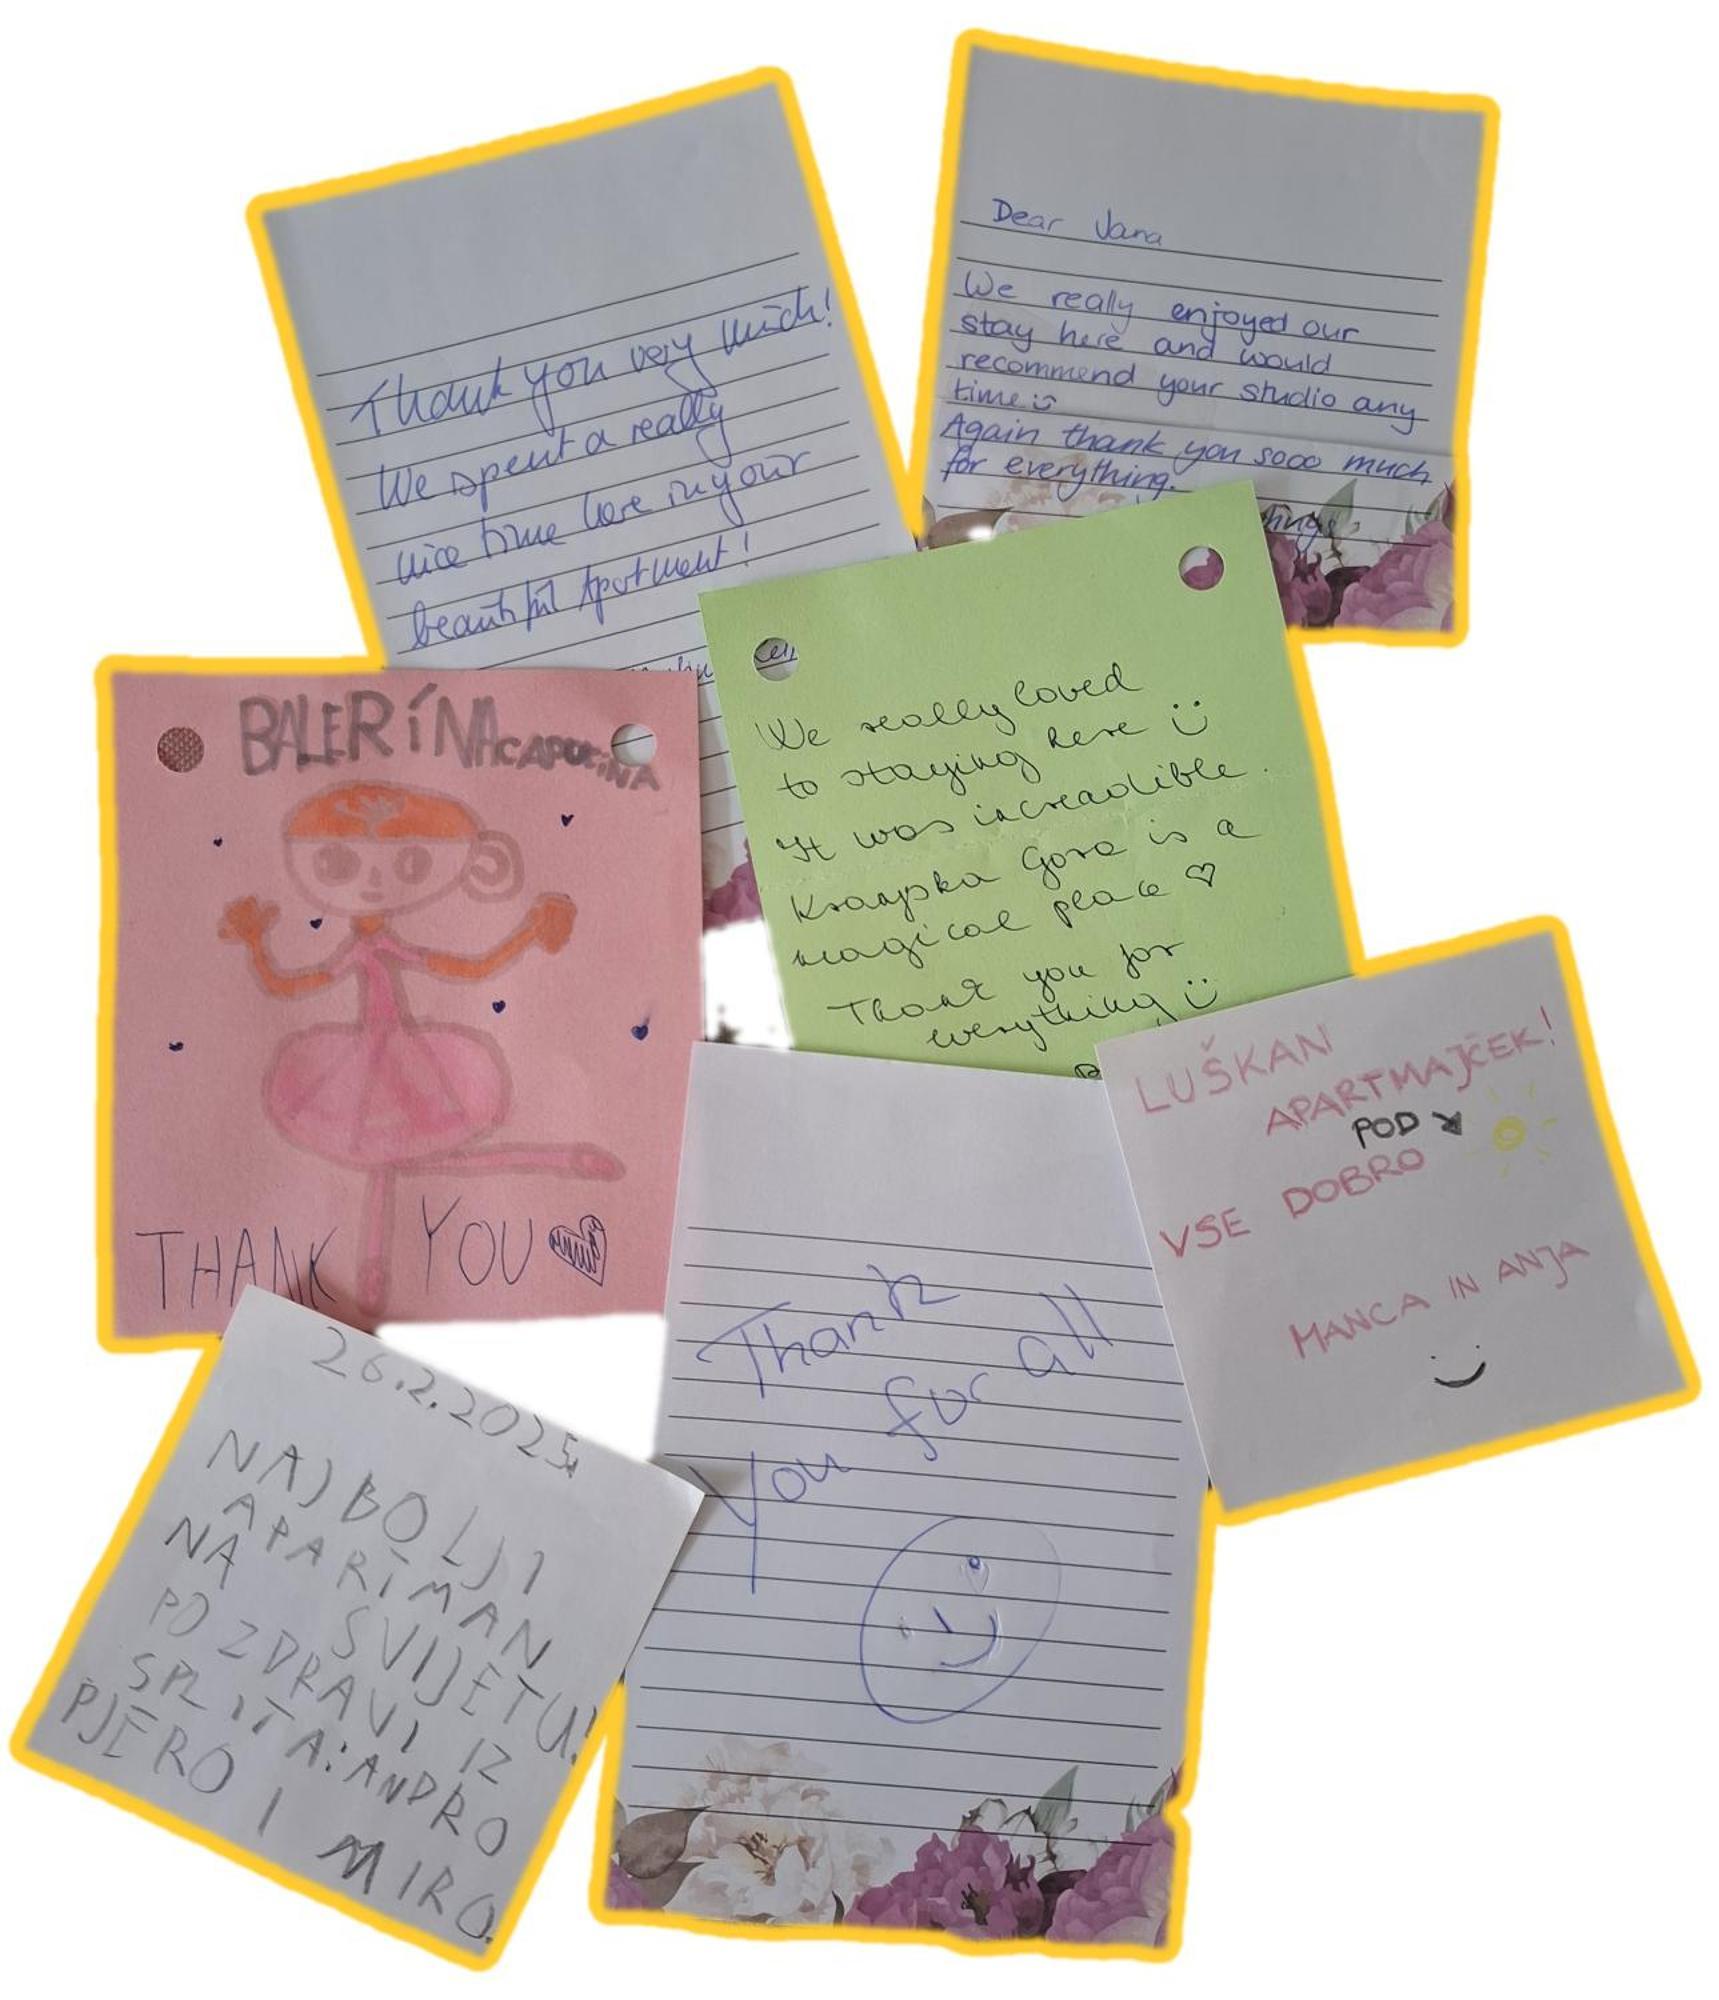 Thank you very much!
We spent a really
nice time here in your
beautiful Apartment!
Dear Jana
We really enjoyed our
stay here and would
recommend your studio any
time
Again thank you sooo much
for everything.
BALERÍNA CAPUCINA
THANK YOU
We really loved
to staying here
It was increadible.
Kranjska Gora is a
magical place ♡
Thank you for
everything
LUŠKAN
APARTMAJČEK!
POD
VSE DOBRO
MANCA IN ANJA
26.2.2025.
NAJBOLJI
APARTMAN
NA SVIJETU!
POZDRAVI IZ
SPLITA: ANDRO
PJERO I MIRO.
Thank
you for all